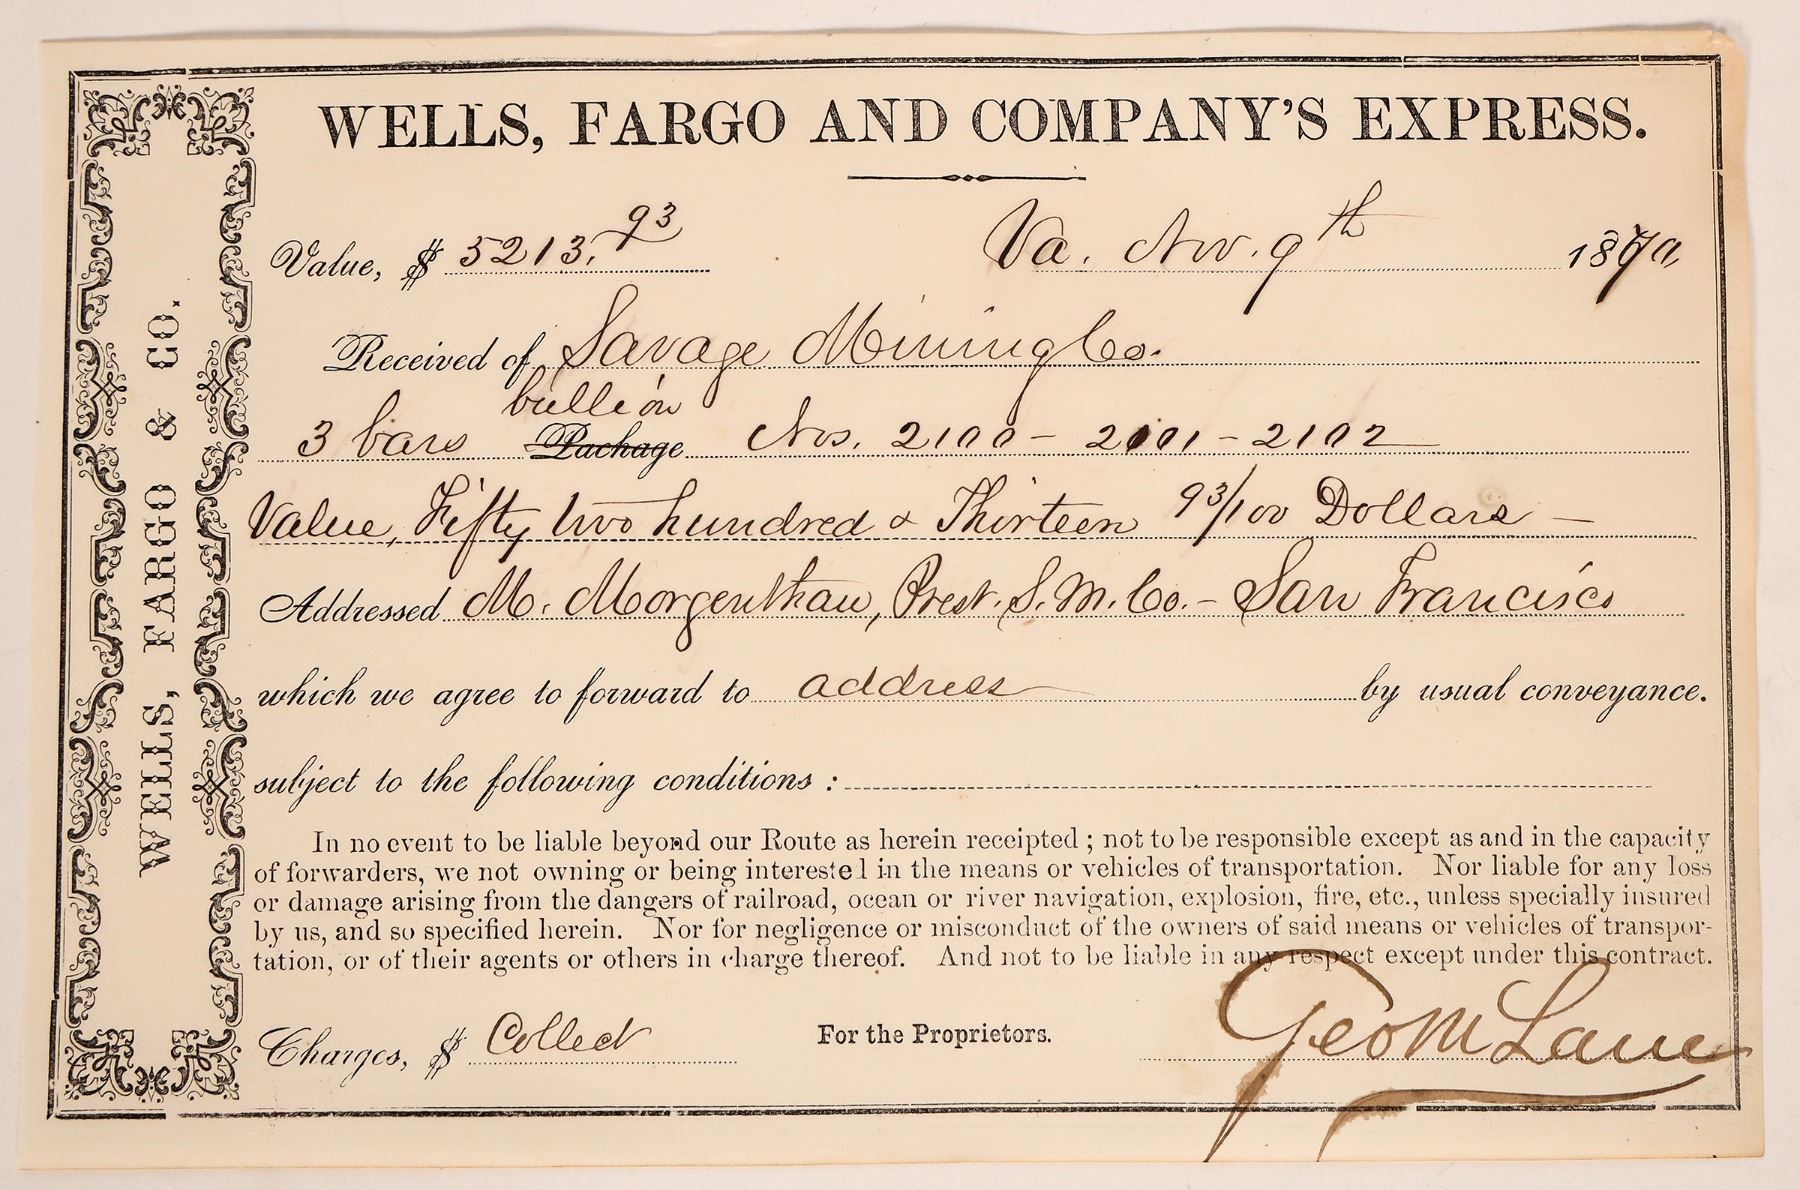 WELLS, FARGO & CO.
WELLS, FARGO AND COMPANY'S EXPRESS.
Value, $ 5213.93 Va. Nov. 9th 1870,
Received of Savage Mining Co.
bullion
3 bars Package Nos. 2100 - 2101 - 2102
Value, Fifty two hundred & Thirteen 93/100 Dollars —
Addressed M. Morgenthau, Prest. S. M. Co. - San Francisco
which we agree to forward to address by usual conveyance.
subject to the following conditions :
In no event to be liable beyond our Route as herein receipted ; not to be responsible except as and in the capacity
of forwarders, we not owning or being interested in the means or vehicles of transportation. Nor liable for any loss
or damage arising from the dangers of railroad, ocean or river navigation, explosion, fire, etc., unless specially insured
by us, and so specified herein. Nor for negligence or misconduct of the owners of said means or vehicles of transpor-
tation, or of their agents or others in charge thereof. And not to be liable in any respect except under this contract.
Charges, $ Collect For the Proprietors. Geo M Lane